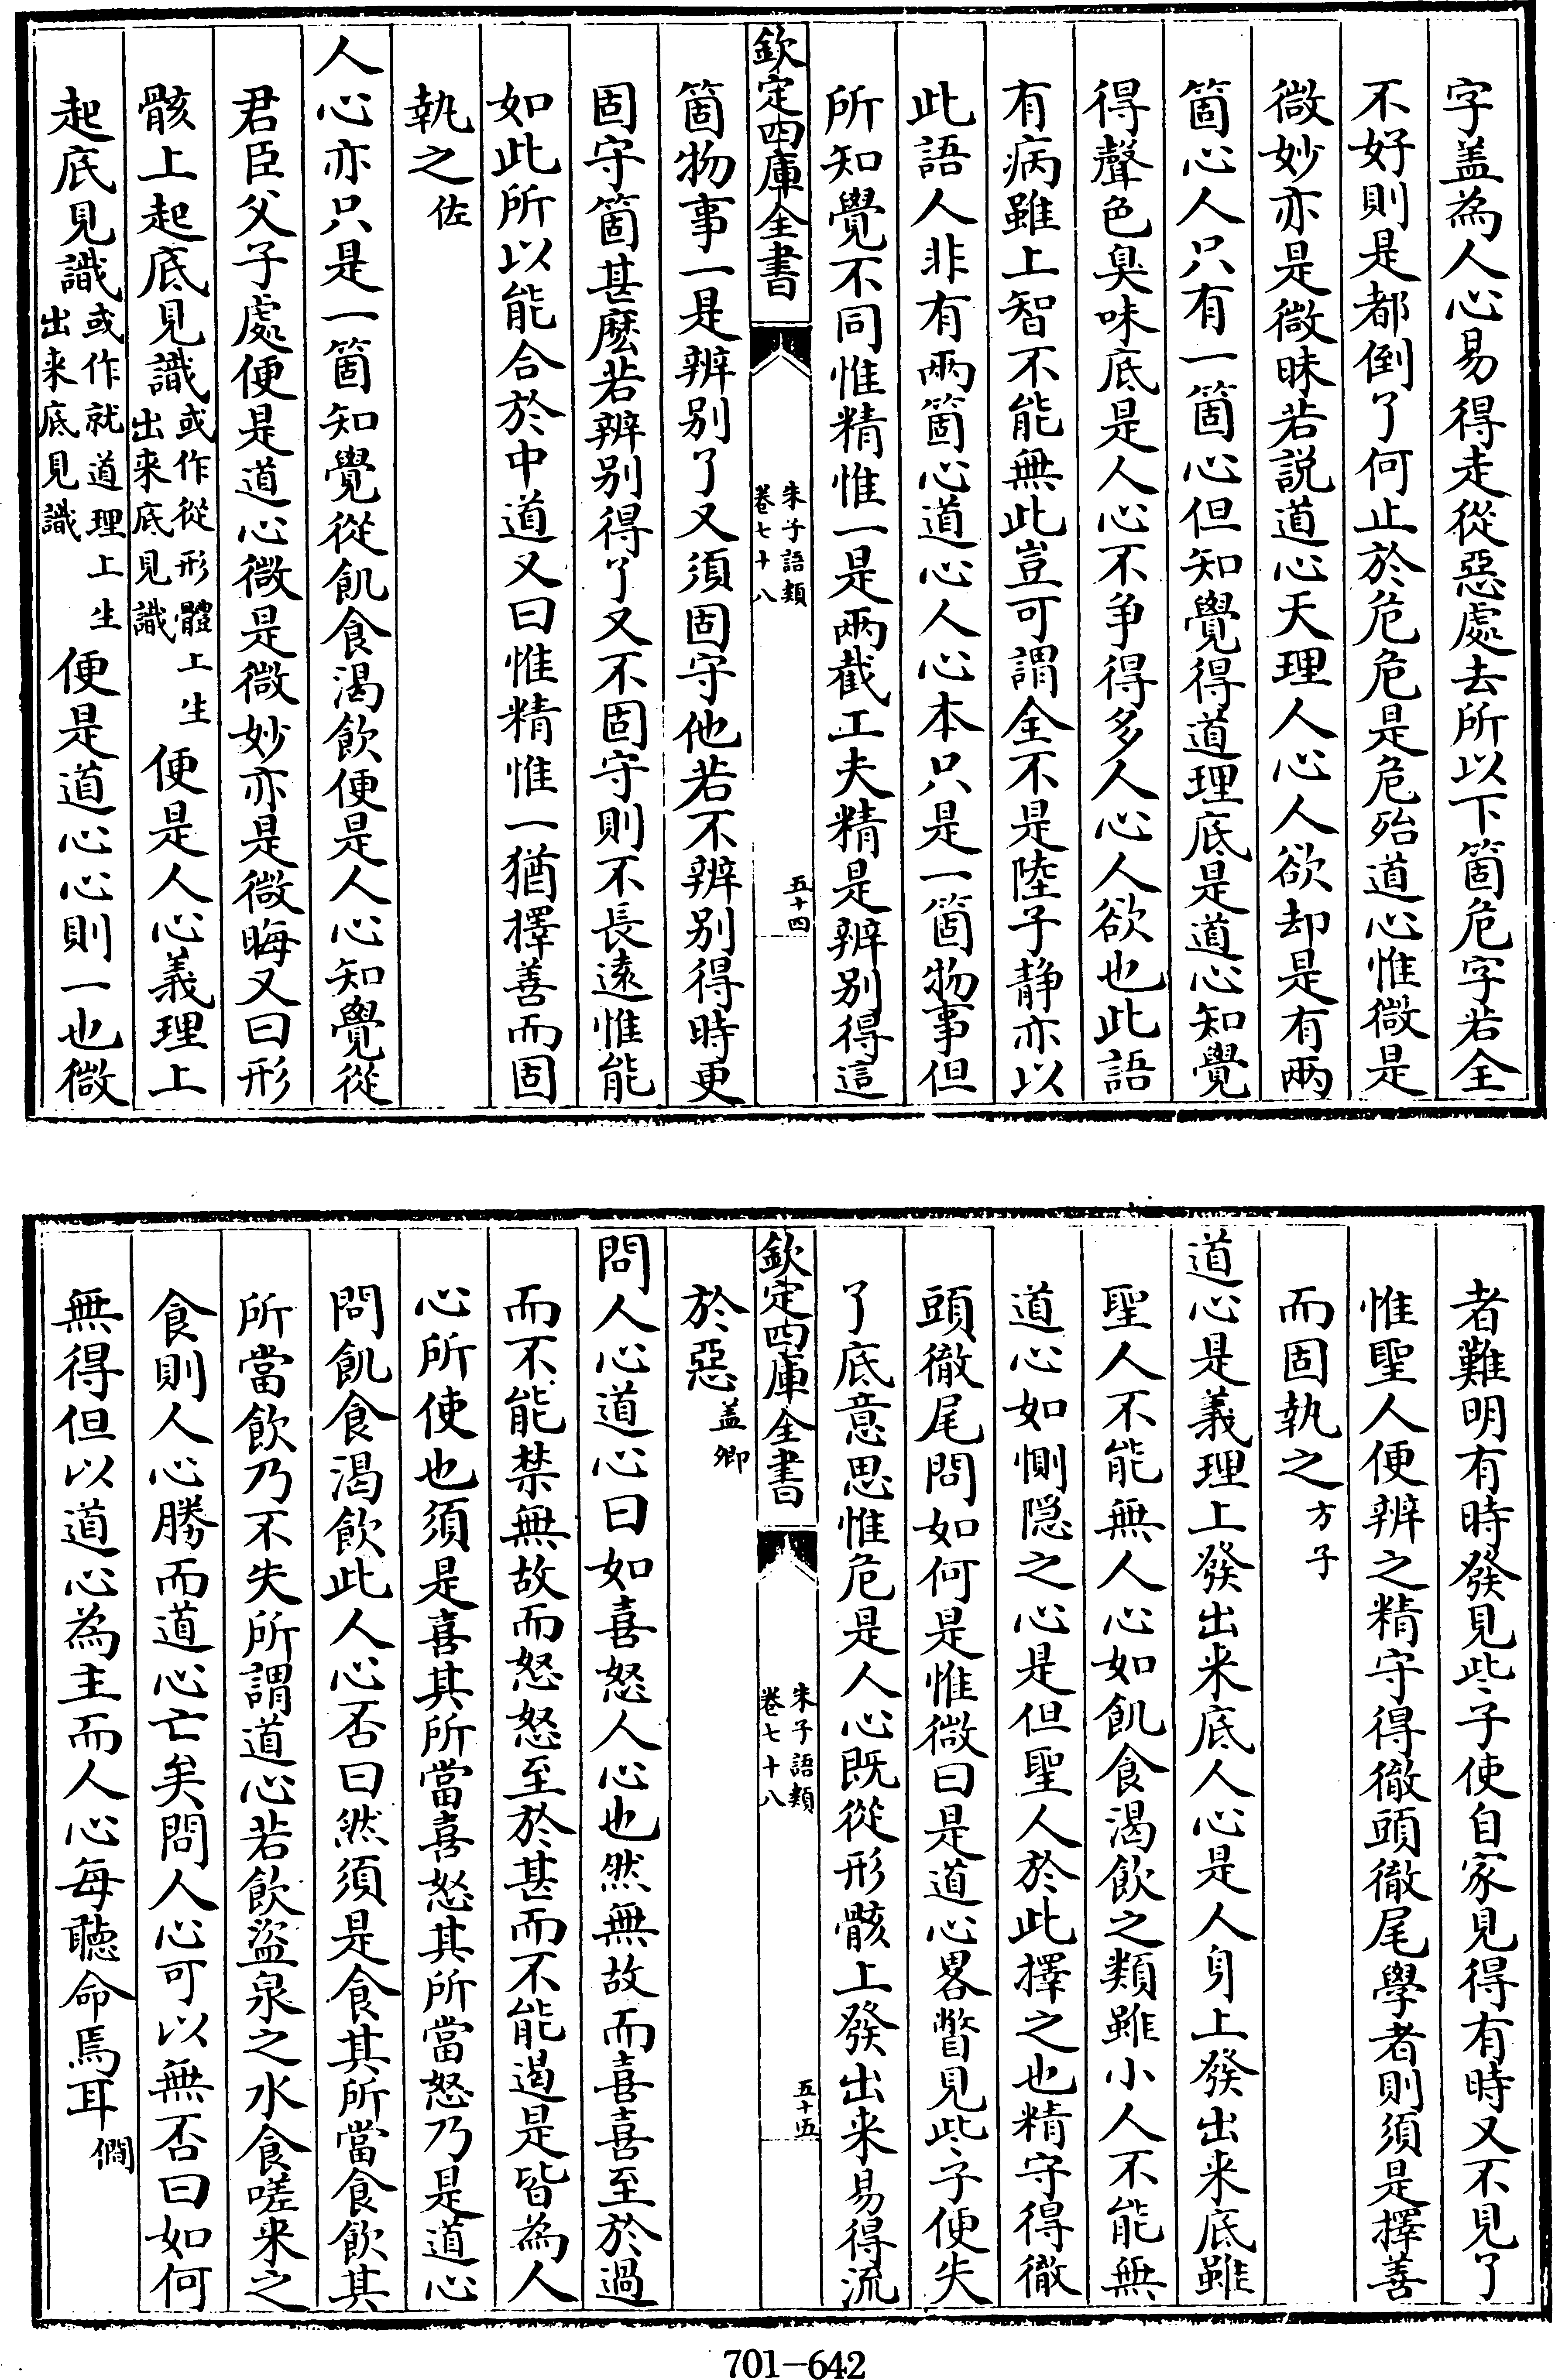 字盖為人心易得走從惡處去所以下箇危字若全
不好則是都倒了何止於危危是危殆道心惟微是
微妙亦是微昧若説道心天理人心人欲却是有兩
箇心人只有一箇心但知覺得道理底是道心知覺
得聲色臭味底是人心不争得多人心人欲也此語
有病雖上智不能無此豈可謂全不是陸子静亦以
此語人非有兩箇心道心人心本只是一箇物事但
所知覺不同惟精惟一是兩截工夫精是辨别得這
欽定四庫全書
朱子語類
卷七十八
五十四
箇物事一是辨别了又須固守他若不辨别得時更
固守箇甚麽若辨别得了又不固守則不長遠惟能
如此所以能合於中道又曰惟精惟一猶擇善而固
執之佐
人心亦只是一箇知覺從飢食渴飲便是人心知覺從
君臣父子處便是道心微是微妙亦是微晦又曰形
骸上起底見識或作從形體上生出来底見識便是人心義理上
起底見識或作就道理上生出来底見識便是道心心則一也微
者難明有時發見些子使自家見得有時又不見了
惟聖人便辨之精守得徹頭徹尾學者則須是擇善
而固執之方子
道心是義理上發出来底人心是人身上發出来底雖
聖人不能無人心如飢食渴飲之類雖小人不能無
道心如惻隠之心是但聖人於此擇之也精守得徹
頭徹尾問如何是惟微曰是道心畧瞥見些子便失
了底意思惟危是人心既從形骸上發出来易得流
欽定四庫全書
朱子語類
卷七十八
五十五
於惡盖卿
問人心道心曰如喜怒人心也然無故而喜喜至於過
而不能禁無故而怒怒至於甚而不能遏是皆為人
心所使也須是喜其所當喜怒其所當怒乃是道心
問飢食渴飲此人心否曰然須是食其所當食飲其
所當飲乃不失所謂道心若飲盗泉之水食嗟来之
食則人心勝而道心亡矣問人心可以無否曰如何
無得但以道心為主而人心每聽命焉耳僩
701-642